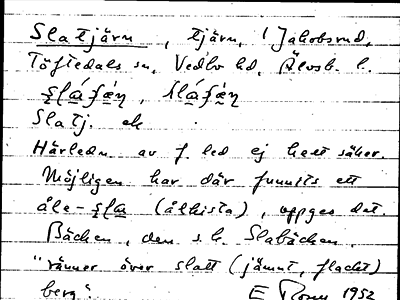 Slatjärn, tjärn, i Jakobsrud,
Töftedals sn, Vedbo hd, Älvsb. l.
Slatj. ek
Härledn av f. led ej helt säker.
Möjligen har där funnits ett
åle-sla (ålkista), uppges det.
Bäcken, den s.k. Slabäcken
"ränner över slatt (jämnt, flackt)
berg". E Rosn 1952